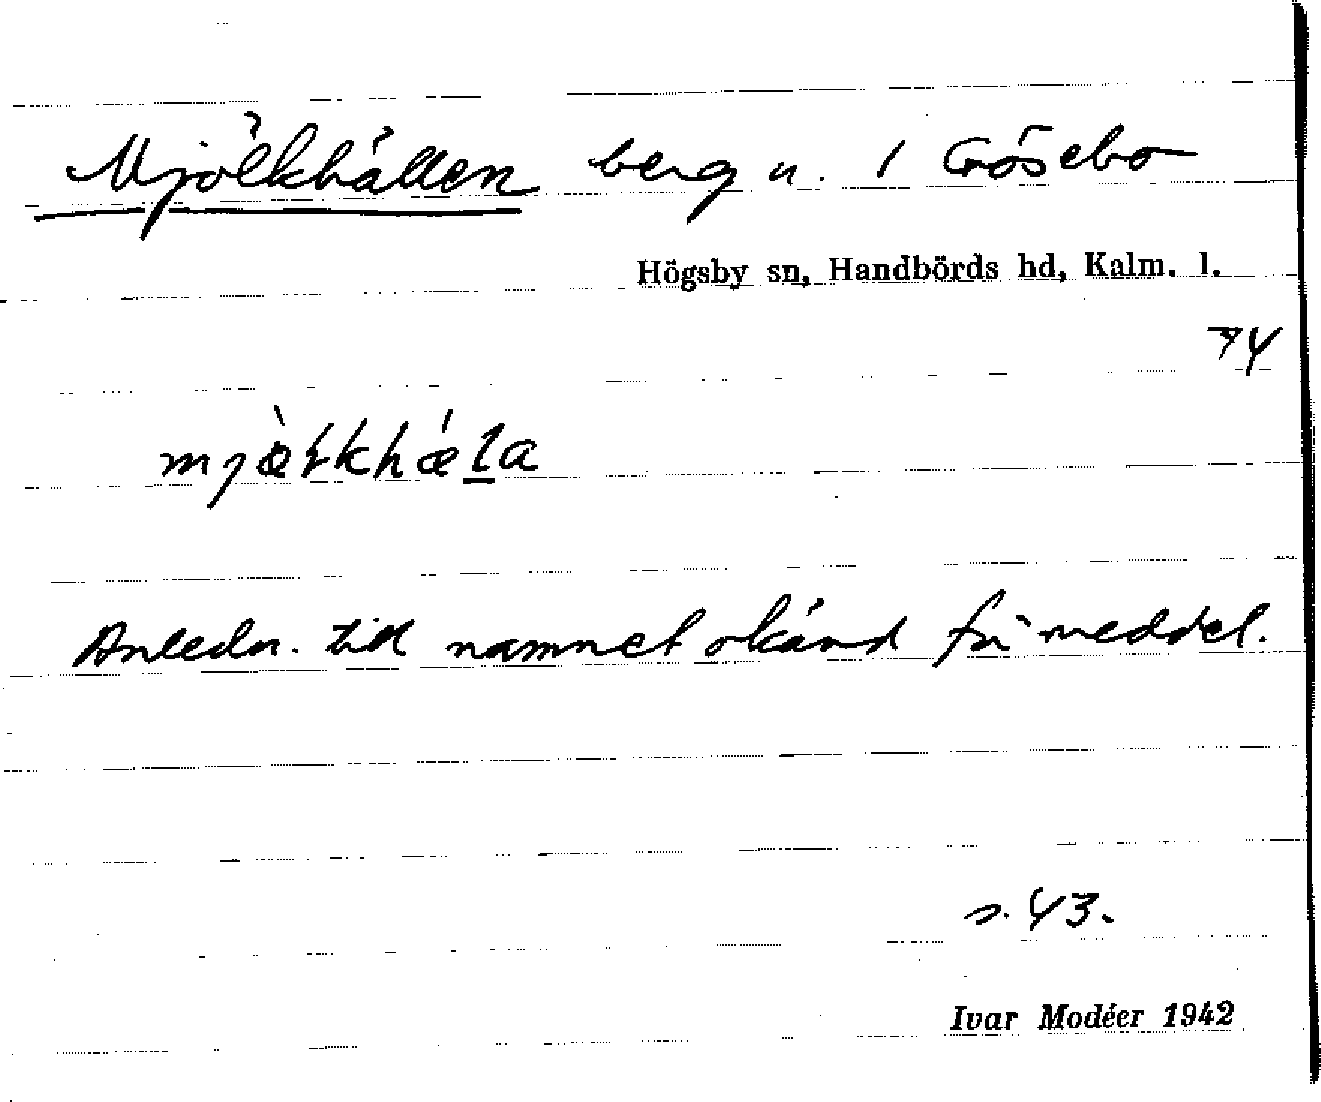 Mjölkhällen berg u. 1 Gösebo
Högsby sn, Handbörds hd, Kalm. l.
74
mjælkhæla
Anledn. till namnet okänd för meddel.
s. 43.
Ivar Modéer 1942